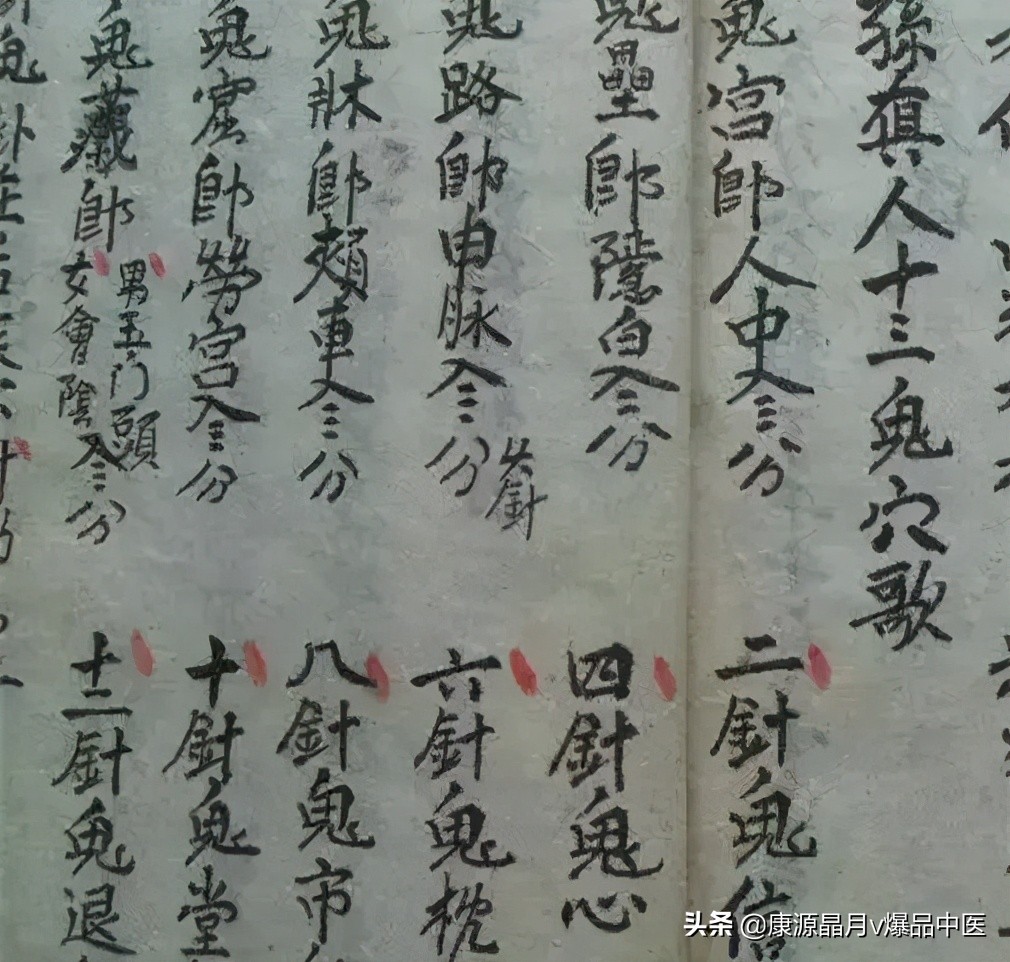 孫真人十三鬼穴歌
鬼宮卽人中入三分 二針鬼信
鬼壘卽隱白入二分 四針鬼心
鬼路卽申脉入三分 火針 六針鬼枕
鬼牀卽頰車入三分 八針鬼市
鬼窟卽勞宮入三分 十針鬼堂
鬼藏卽 男玉門頭 女會陰入三分 十二針鬼退
頭条 @康源晶月v爆品中医